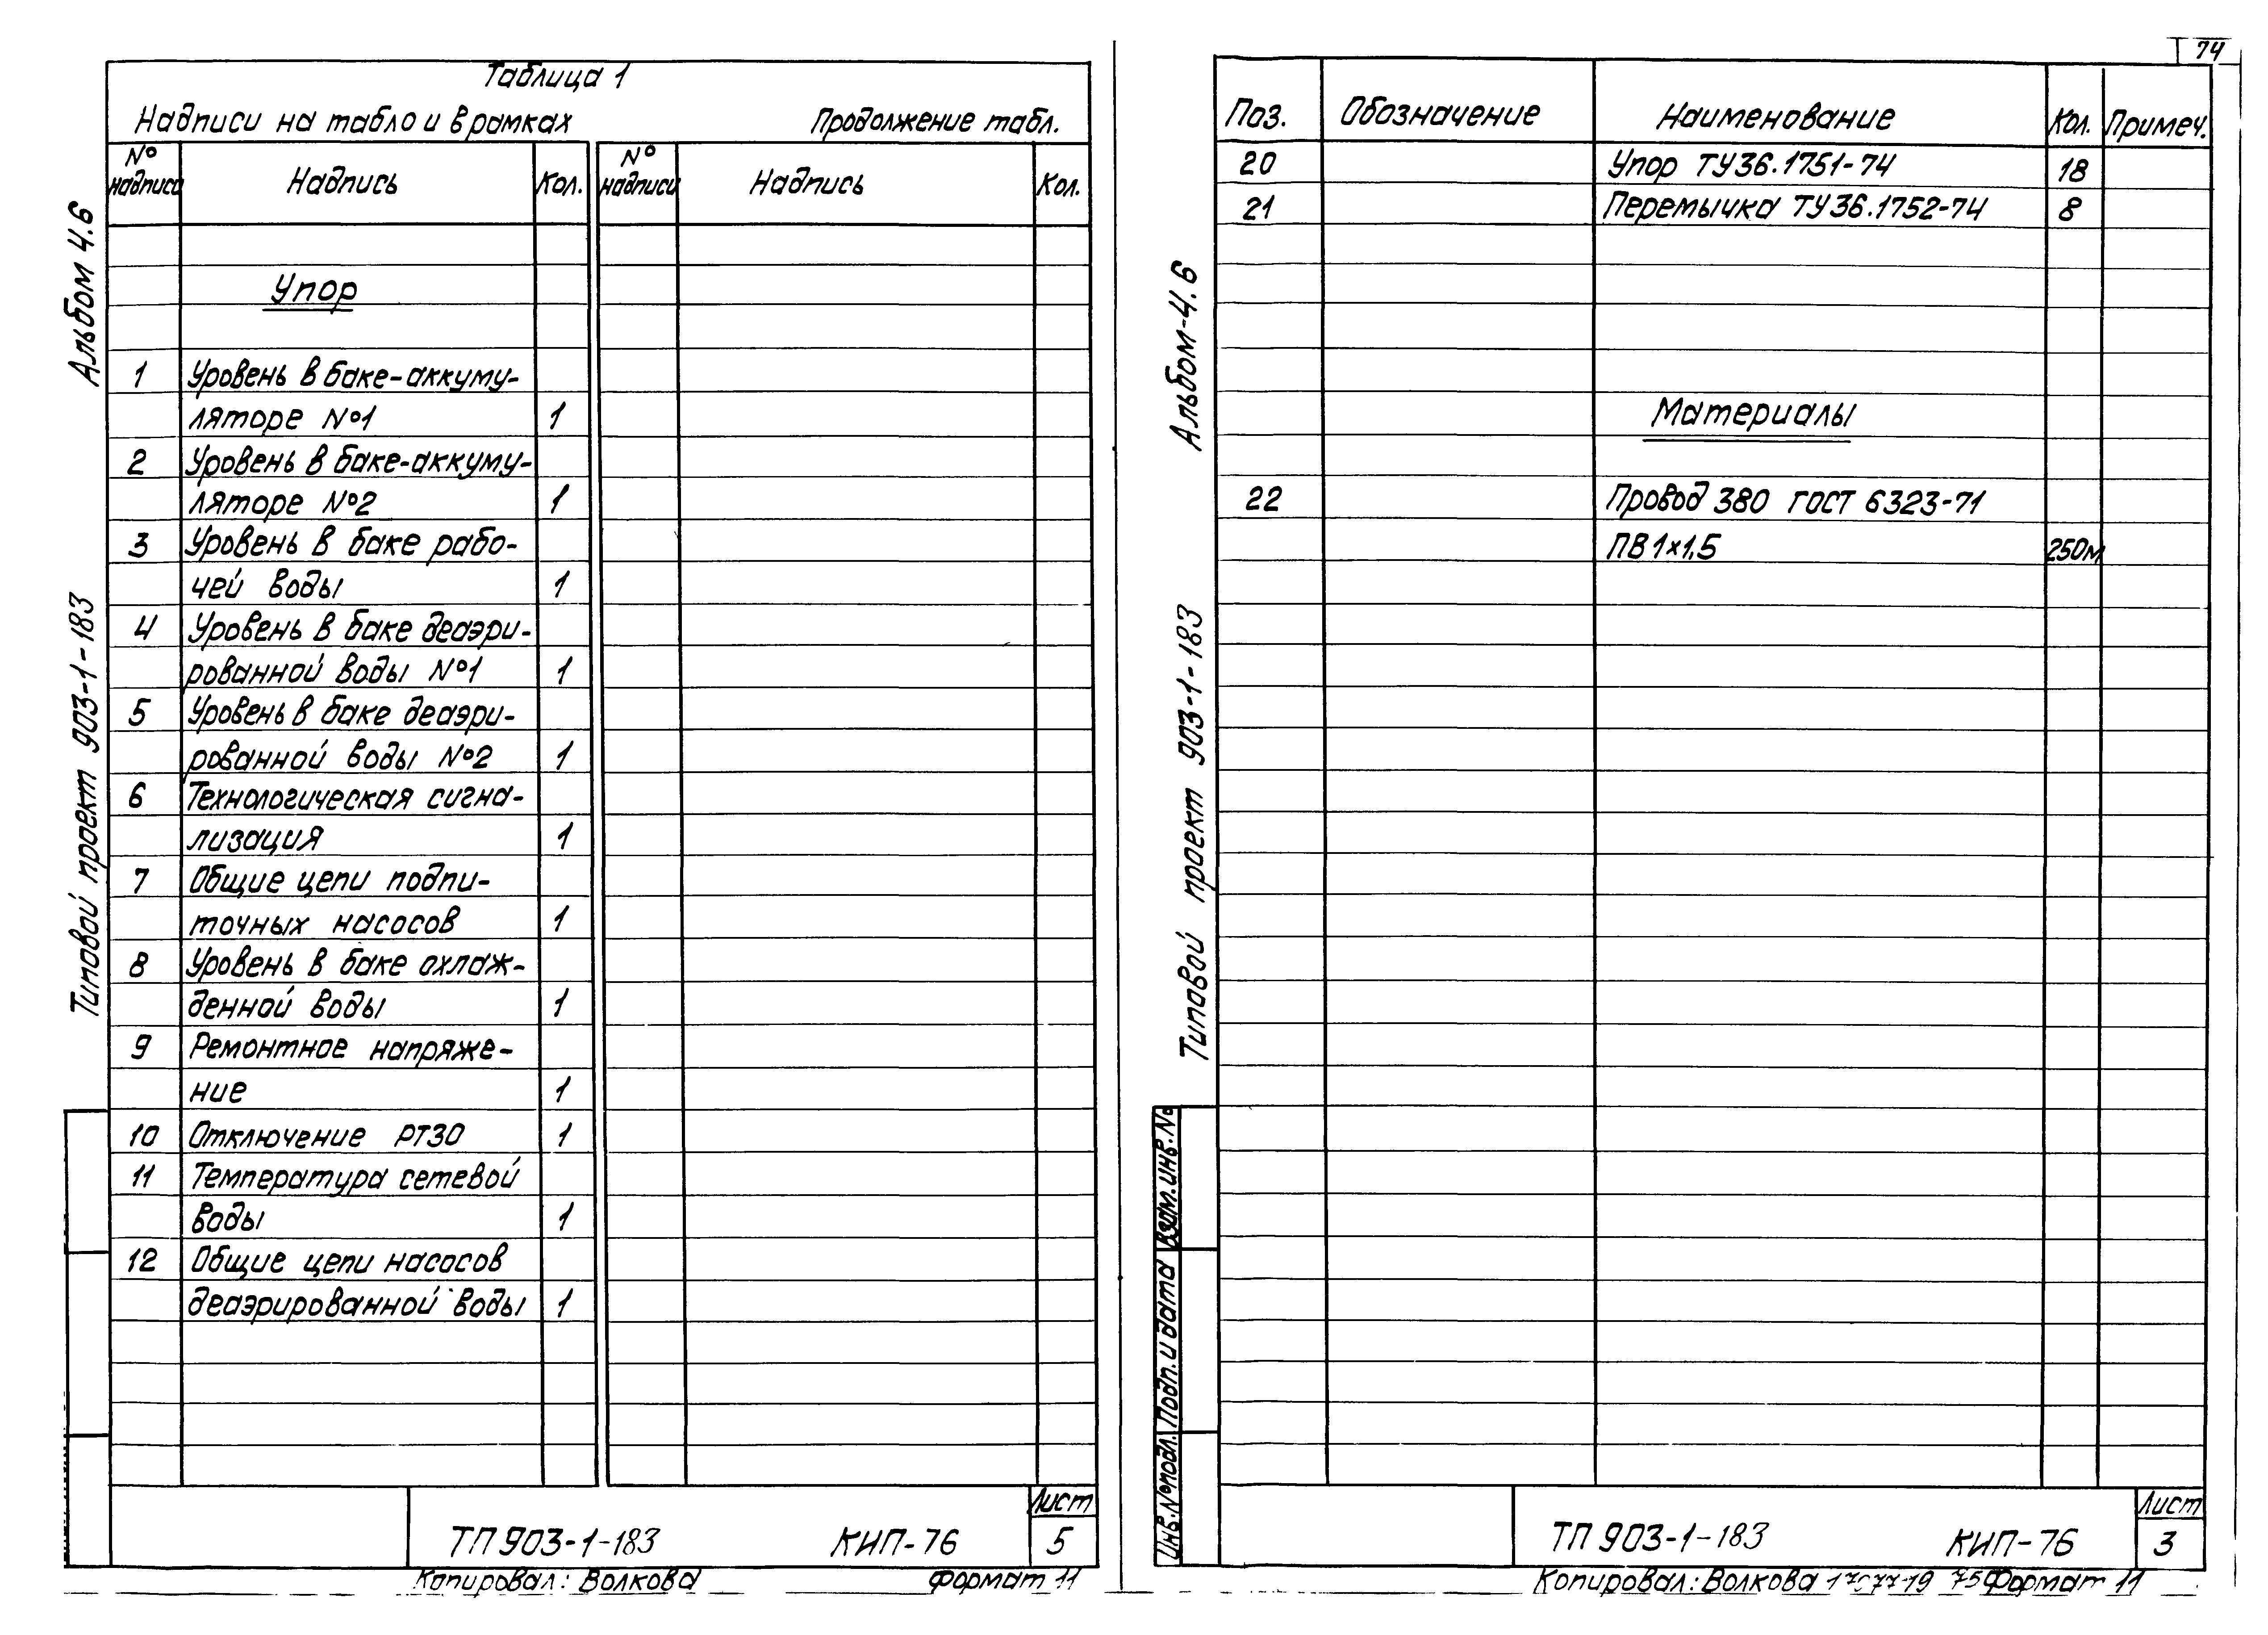 Таблица 1
Надписи на табло и в рамках
Продолжение табл.
№ надписи
Надпись
Кол.
№ надписи
Надпись
Кол.
Упор
1 Уровень в баке-аккуму-
ляторе №1 1
2 Уровень в баке-аккуму-
ляторе №2 1
3 Уровень в баке рабо-
чей воды 1
4 Уровень в баке деаэри-
рованной воды №1 1
5 Уровень в баке деаэри-
рованной воды №2 1
6 Технологическая сигна-
лизация 1
7 Общие цепи подпи-
точных насосов 1
8 Уровень в баке охлаж-
денной воды 1
9 Ремонтное напряже-
ние 1
10 Отключение РТ30 1
11 Температура сетевой
воды 1
12 Общие цепи насосов
деаэрированной воды 1
Альбом 4.6
Типовой проект 903-1-183
ТП 903-1-183 КИП-76
Лист
5
Копировал: Волкова Формат 11
74
Поз. Обозначение Наименование Кол. Примеч.
20 Упор ТУ36.1751-74 18
21 Перемычка ТУ36.1752-74 8
Материалы
22 Провод 380 ГОСТ 6323-71
ПВ1×1,5 250м
Альбом-4.6
Типовой проект 903-1-183
Взам.инв.№
Подп. и дата
Инв.№подл.
ТП 903-1-183 КИП-76
Лист
3
Копировал: Волкова 75 Формат 11